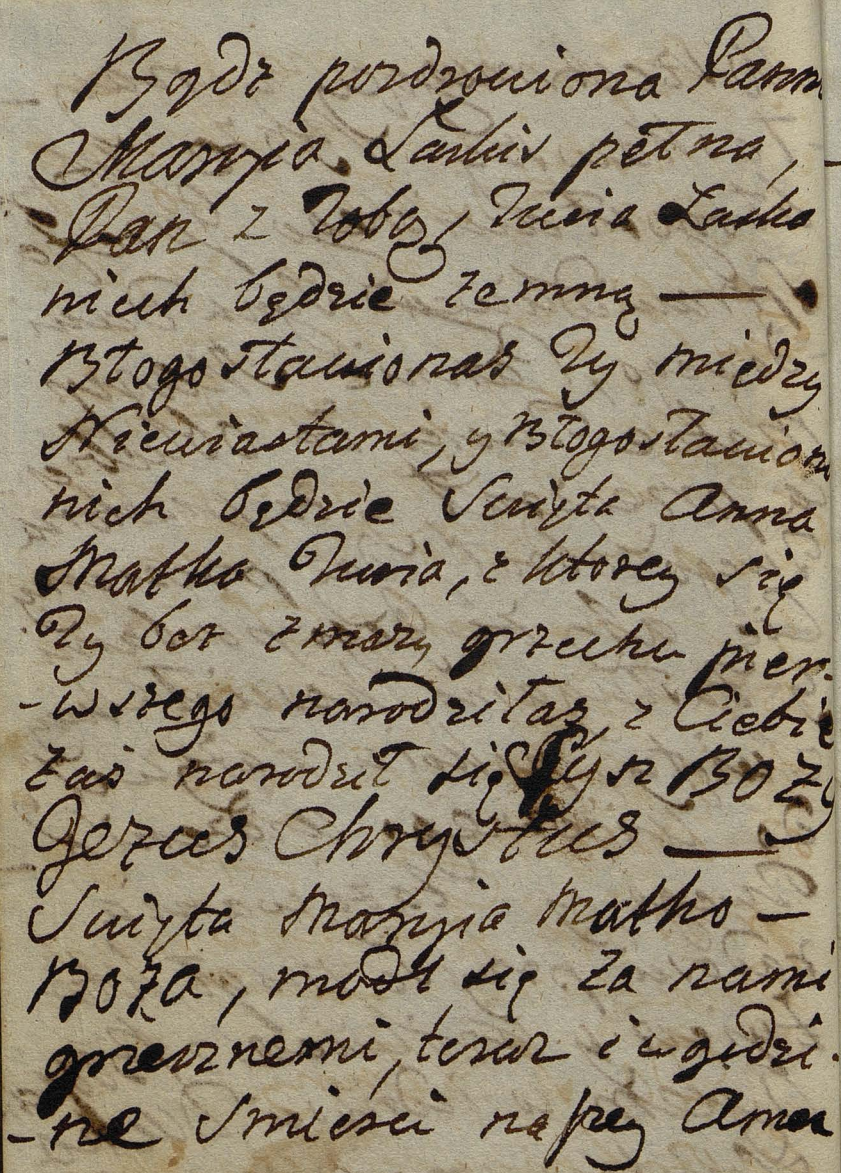 Bądz pozdrowiona Pann
Maryia Łaskis pełna,
Pan z Tobą, Twoia Łaska
niech będzie zemną —
Błogosławionas Ty między
Niewiastami, y Błogosławion
niech będzie Swięta Anna
Matka Twoia, z ktorey się
Ty bez zmazy grzechu pier-
-wszego narodziłas, z Ciebie
zas narodził się Syn Bozy
Jezus Chrystus —
Swięta Maryia Matko —
Boza, modl się za nami
grzesznemi, teraz i w godzi-
-ne Smierci naszey Amen